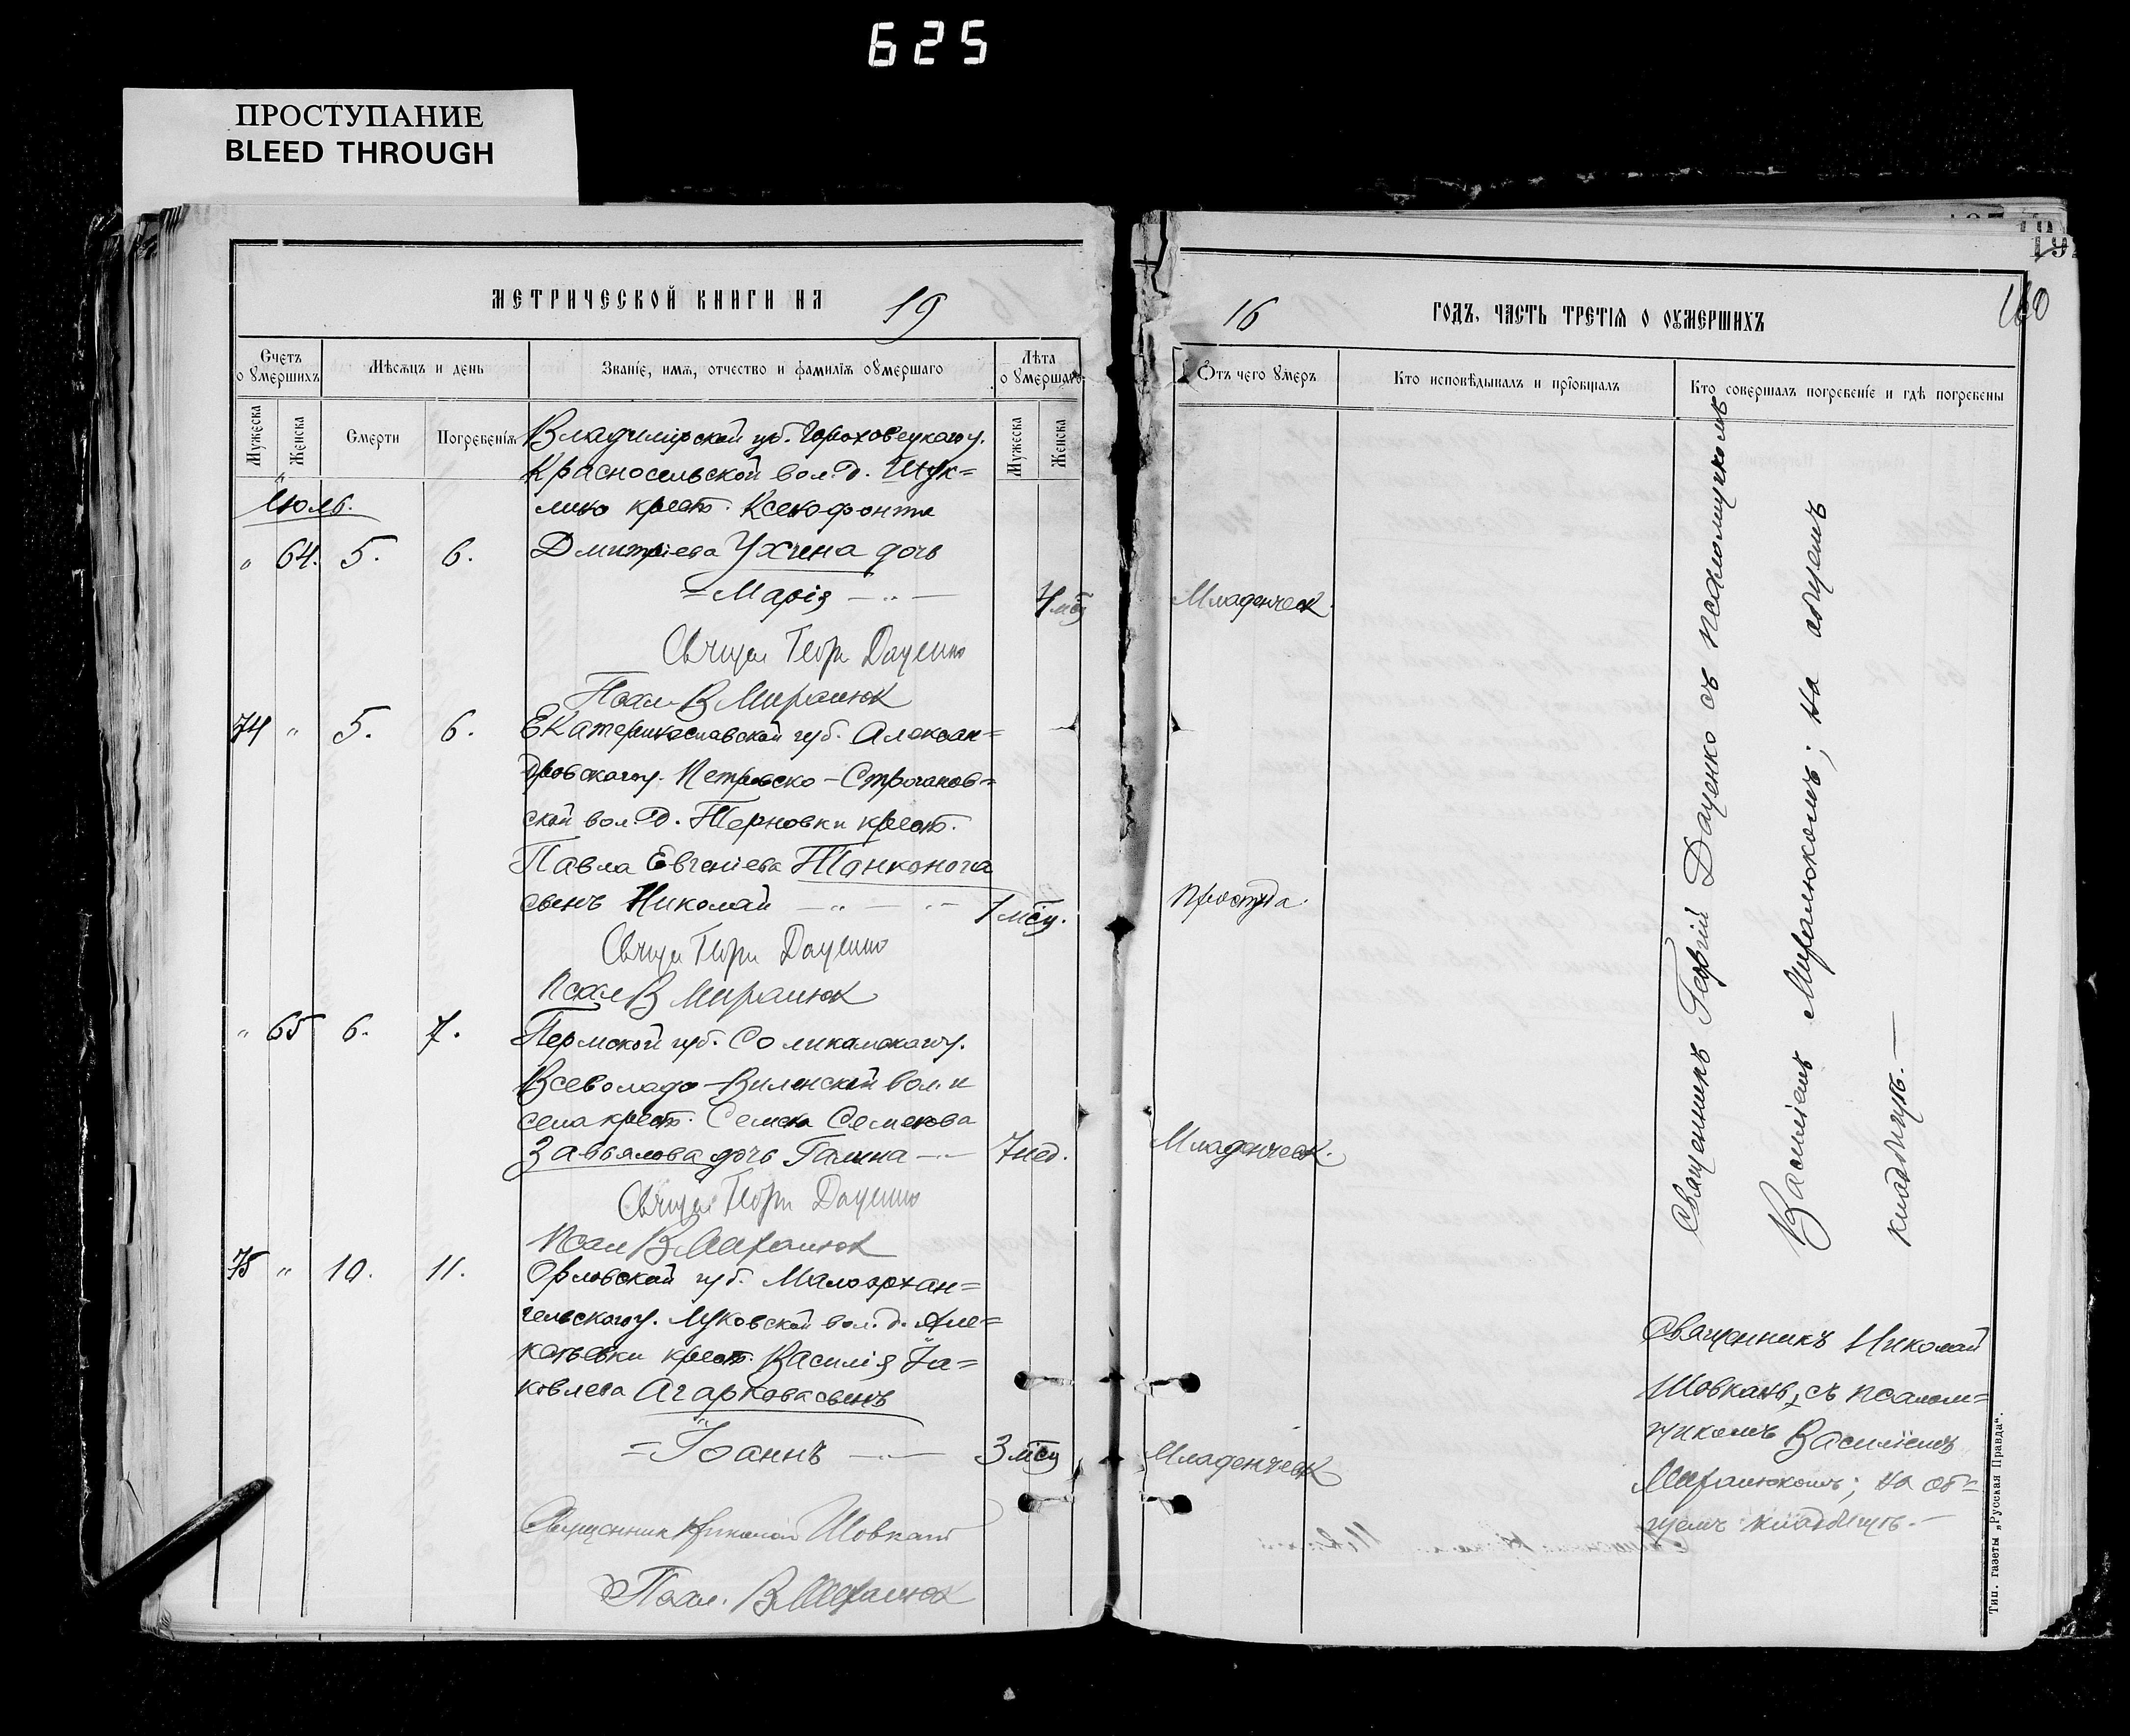 625
ПРОСТУПАНИЕ
BLEED THROUGH
МЕТРИЧЕСКОЙ КНИГИ НА 19
16 ГОДЪ, ЧАСТЬ ТРЕТІЯ О ОУМЕРШИХЪ
160
Счетъ о умершихъ
Мѣсяцъ и день
Званіе, имя, отчество и фамилія оумершаго
Лѣта о умершаго
Отъ чего умеръ
Кто исповѣдывалъ и пріобщалъ
Кто совершалъ погребеніе и гдѣ погребены
Мужеска
Женска
Смерти
Погребенія
Мужеска
Женска
Іюль.
Владимірской губ. Гороховецкаго у.
Красносельской вол. д. Шук=
лино крест. Ксенофонта
" 64. 5. 6. Дмитріева Ухчина дочь
= Марія — " — 4 мѣс Младенческ.
Свящ Георг Даценко
Псал В Миралюк
74 " 5. 6. Екатеринославской губ. Алексан=
дровского у. Петровско-Строганов=
ской вол. д. Терновки крест.
Павла Евгеніева Тонконога
сынъ Николай — " — 1 мѣсц. Простуда.
Свящ Георг Даценко
Псал В Миралюк
" 65 6. 7. Пермской губ. Соликамскаго у.
Всеволодо-Виленской вол. и
села крест. Семена Семенова
Завьялова дочь Галина — 7 нед. Младенческ.
Свящ Георг Даценко
Псал В Миралюк
75 " 10. 11. Орловской губ. Малоархан=
гельского у. Луковской вол. д.
крест. Василія Іа=
ковлева Агаркова сынъ
= Іоаннъ — 3 мѣсц Младенческ
Священник Николай Шовкань
Псал. В Миралюк
Священникъ Георгій Даценко съ псаломщикомъ
Василіемъ Миралюкомъ; на общемъ
кладбищѣ. —
Священникъ Николай
Шовкань, съ псалом=
щикомъ Василіемъ
Миралюкомъ; на об=
щемъ кладбищѣ. —
Тип. газеты „Русская Правда".